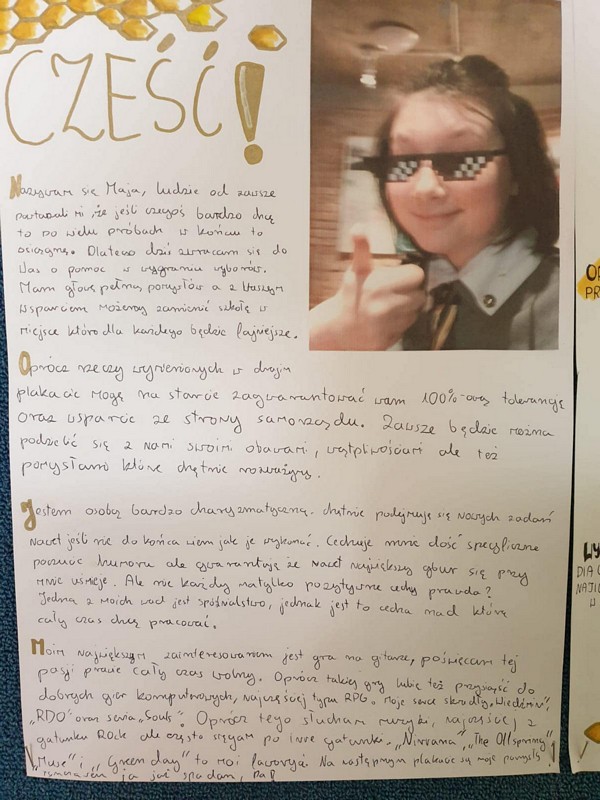 CZEŚĆ!
Nazywam się Maja, ludzie od zawsze
powtarzali mi, że jeśli czegoś bardzo chcę
to po wielu próbach w końcu to
osiągnę. Dlatego dziś zwracam się do
Was o pomoc w wygraniu wyborów.
Mam głowę pełną pomysłów a z Waszym
wsparciem możemy zamienić szkołę w
miejsce które dla każdego będzie fajniejsze.
Oprócz rzeczy wymienionych w drugim
plakacie mogę na starcie zagwarantować wam 100%-ową tolerancję
oraz wsparcie ze strony samorządu. Zawsze będzie można
podzielić się z nami swoimi obawami, wątpliwościami ale też
pomysłami które chętnie rozważymy.
Jestem osobą bardzo charyzmatyczną, chętnie podejmuję się nowych zadań
nawet jeśli nie do końca wiem jak je wykonać. Cechuje mnie dość specyficzne
poczucie humoru ale gwarantuję że nawet największy gbur się przy
mnie uśmieje. Ale nie każdy ma tylko pozytywne cechy prawda?
Jedną z moich wad jest spóźnialstwo, jednak jest to cecha nad którą
cały czas chcę pracować.
Moim największym zainteresowaniem jest gra na gitarze, poświęcam tej
pasji prawie cały czas wolny. Oprócz takiej gry lubię też przysiąść do
dobrych gier komputerowych, najczęściej typu RPG. Moje serce skradły „Wiedźmin",
„RDO" oraz seria „Souls". Oprócz tego słucham muzyki, najczęściej z
gatunku Rock ale często sięgam po inne gatunki. „Nirvana", „The Offspring"
„Muse" i „Green day" to moi faworyci. Na następnym plakacie są moje pomysły
ja już spadam, pa!
OP
PR
WY
DLA
NAJL